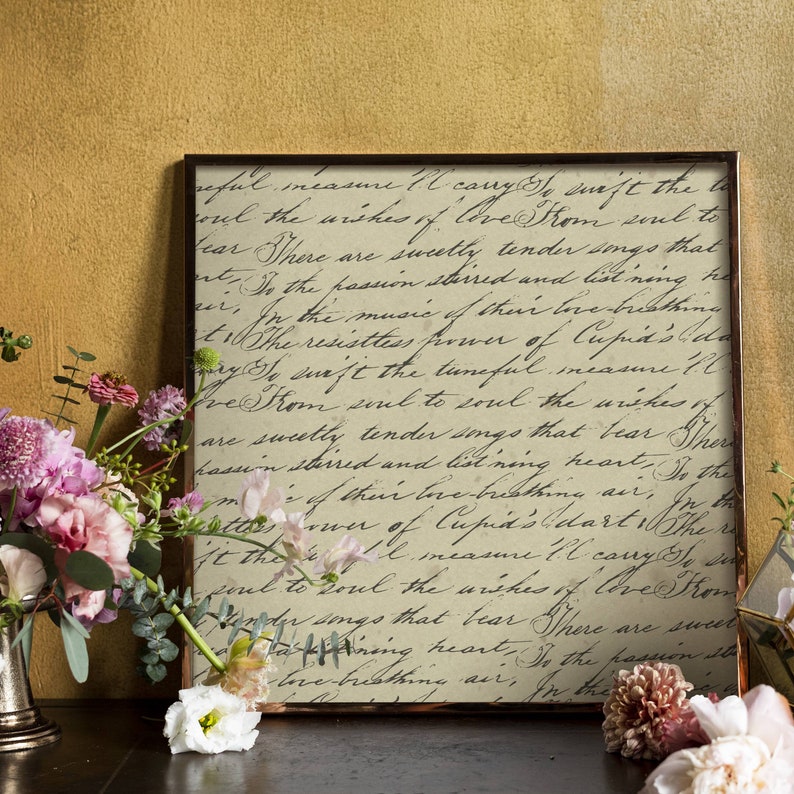 neful measure I'll carry To swift the t
soul the wishes of love From soul to
bear There are sweetly tender songs that
To the passion stirred and list'ning he
air, In the music of their love-breathing
The resistless power of Cupid's da
carry To swift the tuneful measure I'll
love From soul to soul the wishes of
are sweetly tender songs that bear There
passion stirred and list'ning heart, To the
of their love-breathing air, In th
power of Cupid's dart, The re
ft the tuneful measure I'll carry To sw
soul to soul the wishes of love From
tender songs that bear There are sweet
ning heart, To the passion
love-breathing air, In the music